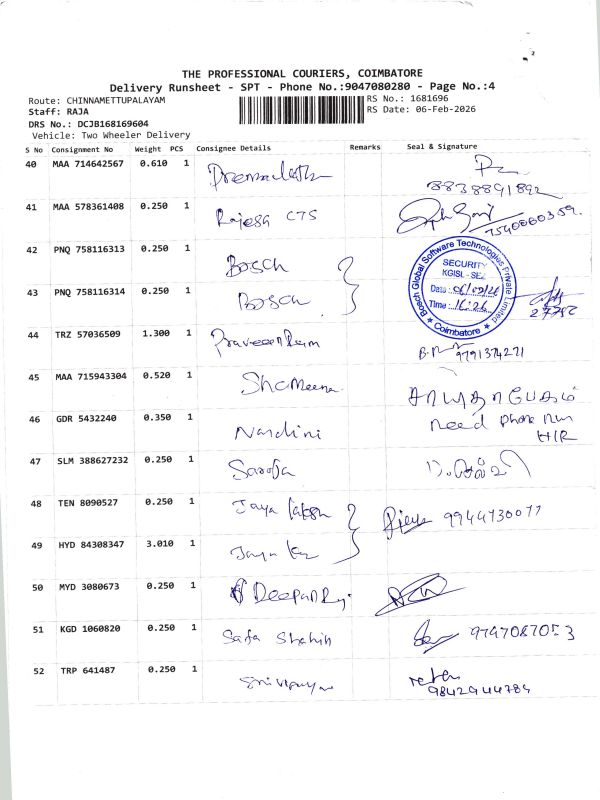 THE PROFESSIONAL COURIERS, COIMBATORE
Delivery Runsheet - SPT - Phone No.:9047080280 - Page No.:4
Route: CHINNAMETTUPALAYAM
RS No.: 1681696
Staff: RAJA
RS Date: 06-Feb-2026
DRS No.: DCJB168169604
Vehicle: Two Wheeler Delivery
S No Consignment No Weight PCS Consignee Details Remarks Seal & Signature
40 MAA 714642567 0.610 1 Premalatha
8838891892
41 MAA 578361408 0.250 1 Rajesh CTS
7540000359
42 PNQ 758116313 0.250 1 Bosch
43 PNQ 758116314 0.250 1 Bosch
Bosch Global Software Technologies Private Limited
SECURITY
KGISL - SEZ
Date: 06/02/26
Time: 16:26
* Coimbatore *
44 TRZ 57036509 1.300 1
9791374221
45 MAA 715943304 0.520 1 Shameena
46 GDR 5432240 0.350 1 Nandini
need phone num
47 SLM 388627232 0.250 1 Saroja
48 TEN 8090527 0.250 1 Jaya
9944730077
49 HYD 84308347 3.010 1 Jaya
50 MYD 3080673 0.250 1
51 KGD 1060820 0.250 1 Safa Shahin
52 TRP 641487 0.250 1
9842944784